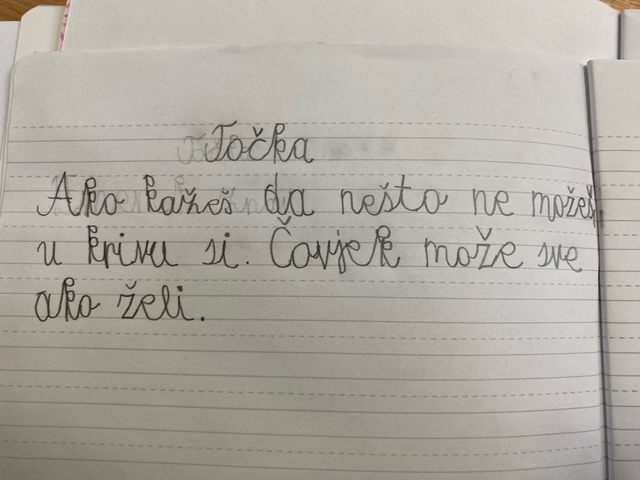 Točka
Ako kažeš da nešto ne možeš,
u krivu si. Čovjek može sve
ako želi.